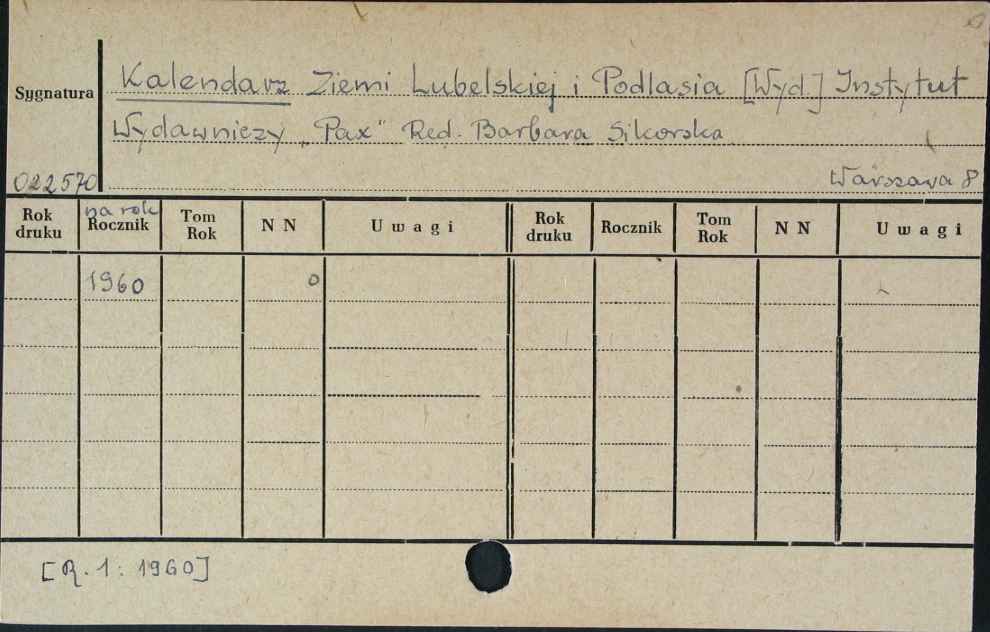 Sygnatura
Kalendarz Ziemi Lubelskiej i Podlasia [Wyd.] Instytut
Wydawniczy „Pax" Red. Barbara Sikorska
022570
Warszawa 8
Rok druku
na rok
Rocznik
Tom Rok
N N
Uwagi
Rok druku
Rocznik
Tom Rok
N N
Uwagi
1960
0
[R. 1: 1960]